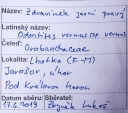 Název: Zdravínek jarní pravý
Latinský název:
Odontites vernus ssp. vernus
Čeleď:
Orobanchaceae
Lokalita: Lhotka (F-M)
Jarošov, úhor
Pod Královou horou
Datum sběru: Sběratel:
17.6.2019 Zbyněk Lukeš